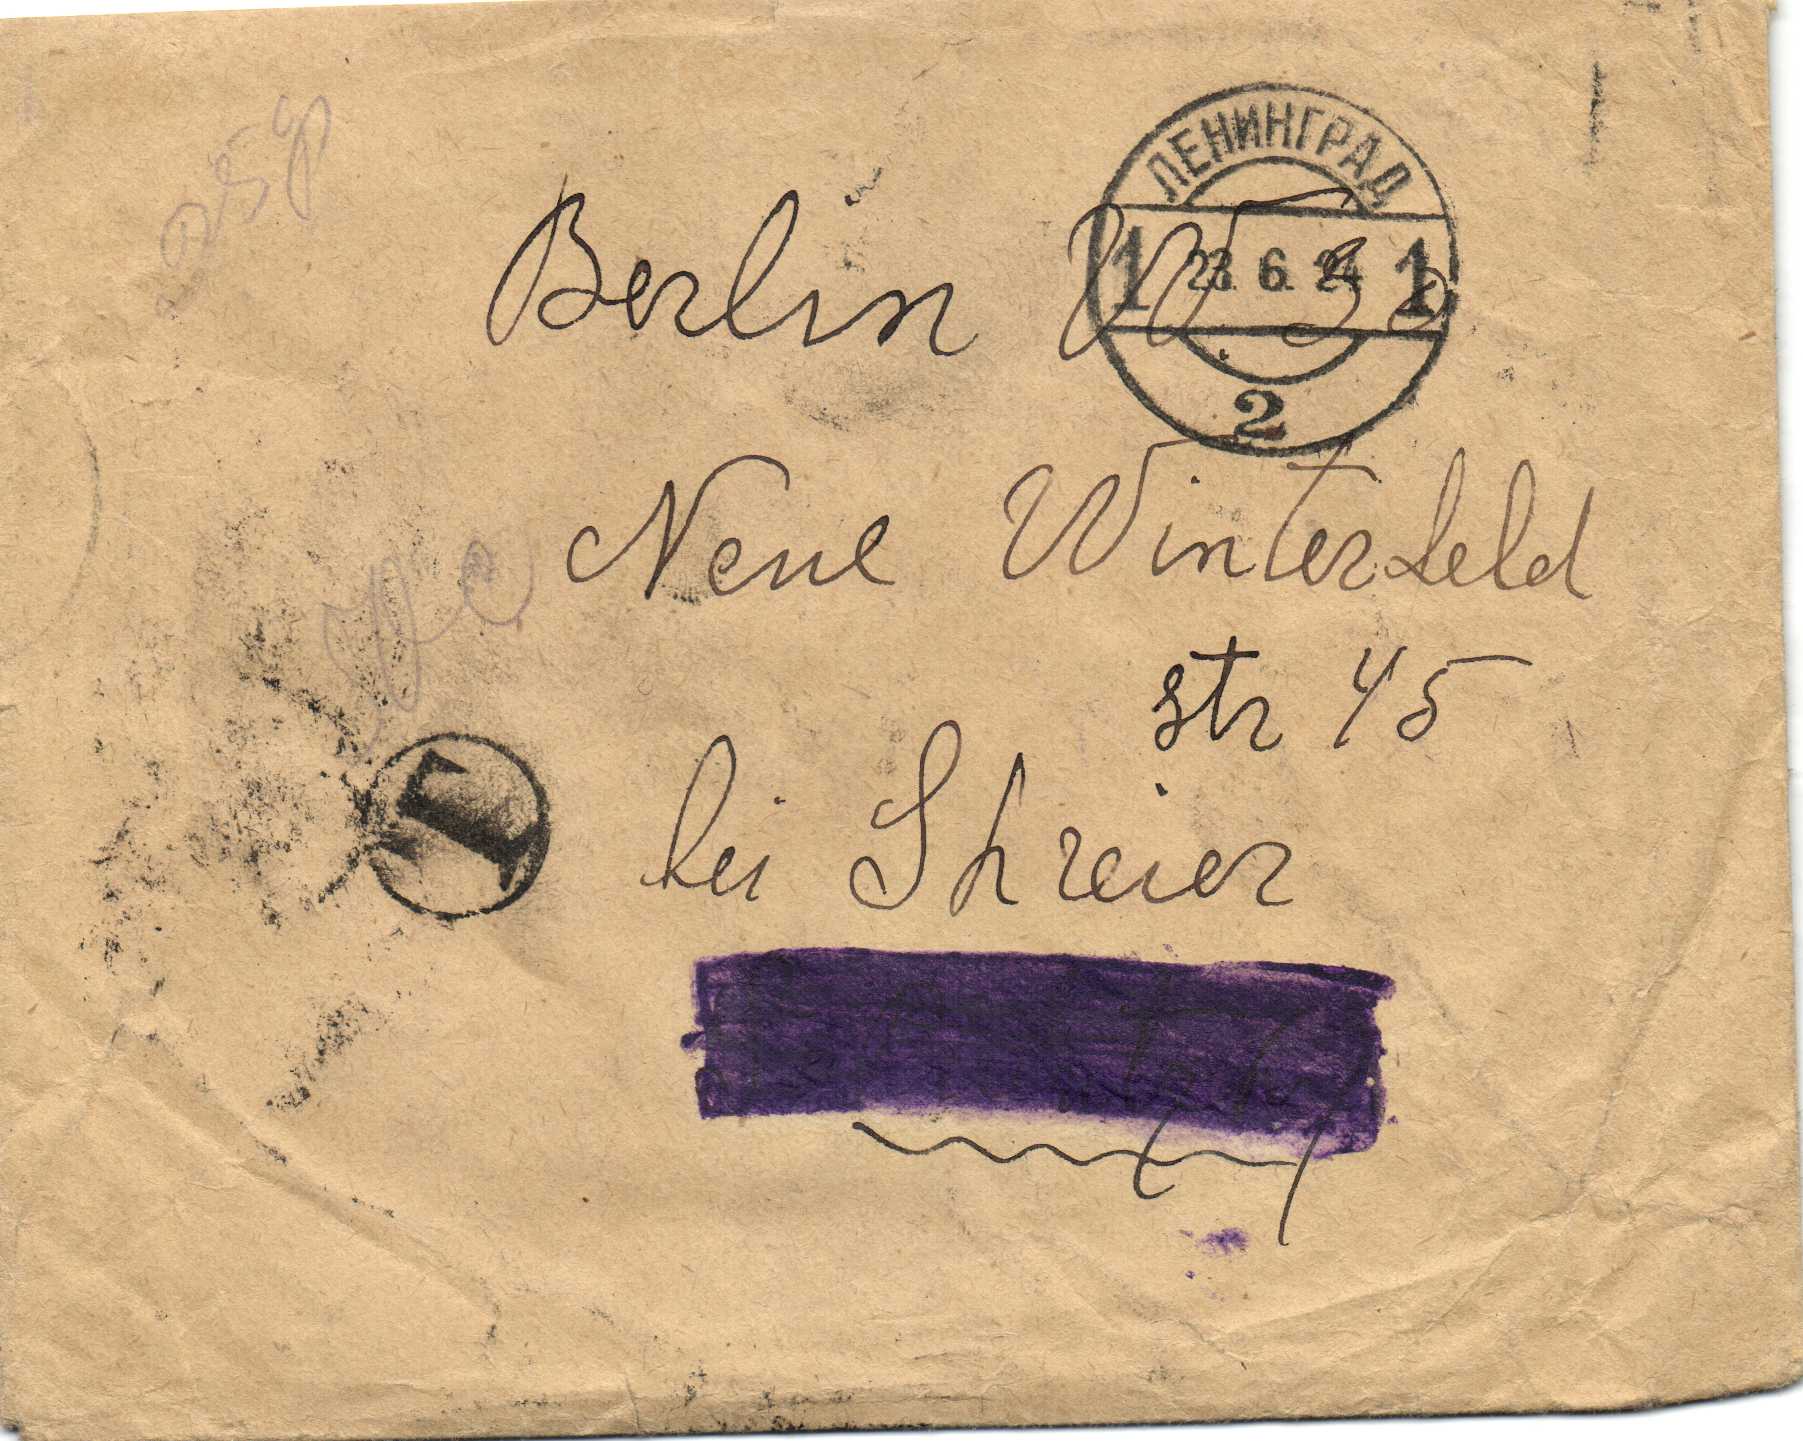 ЛЕНИНГРАД
1 23.6.24 1
2
Berlin W. 30
Neue Winterfeld
str 45
bei Shreier
T